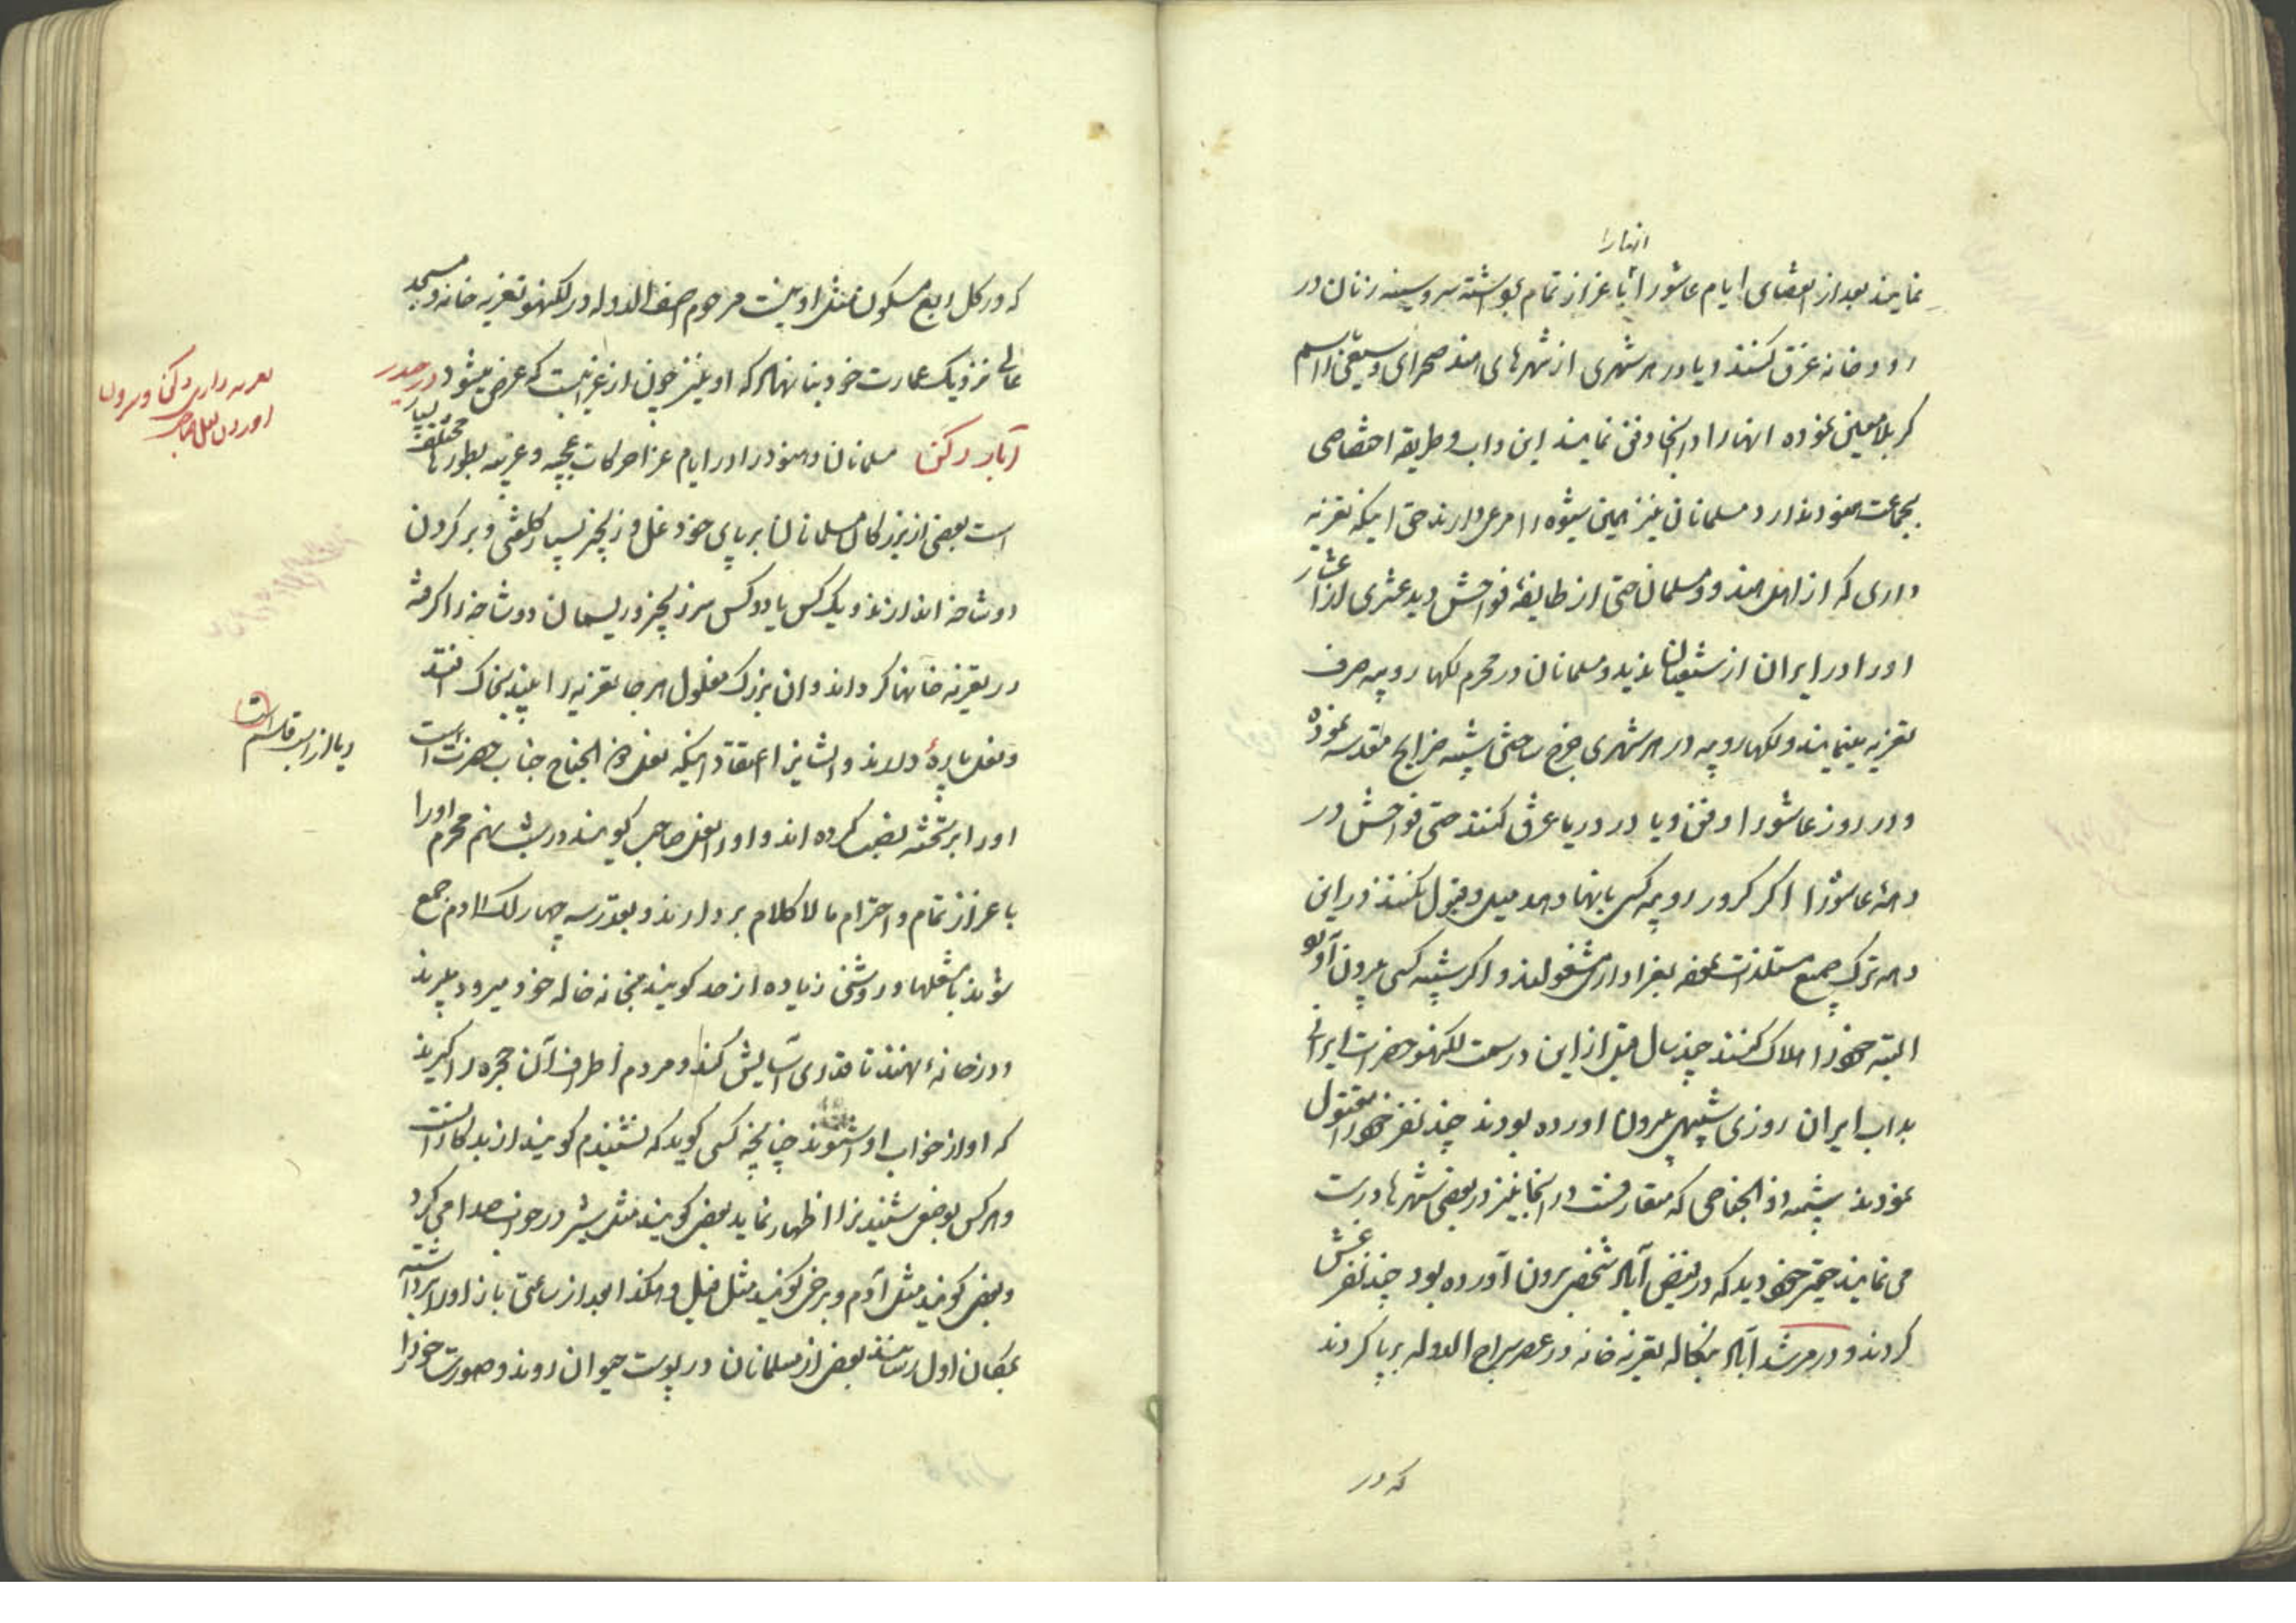 انها را
نمایند بعد از انقضای ایام عاشورا با عزاز تمام بر داشته سر و سینه زنان در
رودخانه غرق کنند و یا در هر شهری از شهرهای هند صحرای وسیعی را اسم
کربلا معین نموده انها را در انجا دفن نمایند این داب و طریقه اختصاصی
بجماعت هنود ندارد مسلمانان نیز همین شیوه را مرعی دارند حتی اینکه تعزیه
داری که از اهل هند و مسلمان حتی از طایفهٔ فواحش دید عشری از اعشار
او را در ایران از شیعیان ندید و مسلمانان در محرم لکها روپیه صرف
تعزیه مینمایند و لکها روپیه در هر شهری خرج ساختن شبیه ضرایح مقدسه نموده
و در روز عاشورا دفن و یا در دریا غرق کنند حتی فواحش در
دههٔ عاشورا اگر کرور روپیه کسی بانها دهد میل و قبول نکنند در این
دهه ترک جمیع مستلذات نموده بعزاداری مشغولند و اگر شبیه کسی بیرون آورد
البته خود را هلاک کنند چند سال قبل از این در سمت لکهنو حضرات ایرانی
بداب ایران روزی شبیهی بیرون اورده بودند چند نفر خود را مقتول
نمودند شبیه ذو الجناحی که متعارفست در انجا نیز در بعضی شهرها درست
می نمایند حقیر خود دید که در فیض آباد شخصی بیرون آورده بود چند نفر غش
کردند و در مرشد آباد بنگاله تعزیه خانه در عصر سراج الدوله برپا کردند
که در
که در کل ربع مسکون مثل او نیست مرحوم اصف الدوله در لکهنو تعزیه خانه و مسجد
عالی نزدیک عمارت خود بنا نهاد که او نیز چون از غرایبست که عرض میشود در حیدر
آباد دکن مسلمانان و هنود را در ایام عزا حرکات عجیبه و غریبه بطورهای مختلف بسیار
است بعضی از بزرگان مسلمانان بر پای خود غل و زنجیر بسیار کلفتی و بر گردن
دوشاخه اندازند و یک کس یا دو کس سر زنجیر و ریسمان دوشاخه را گرفته
در تعزیه خانها گردانند و ان بزرگ مغلول هر جا تعزیه را بیند بخاک افتد
و نعل پارهٔ دارند و ایشانرا اعتقاد اینکه نعل ذو الجناح جناب حضرت است
او را بر تخته نصب کرده اند و او را نعل صاحب گویند در شب نهم محرم او را
با عزاز تمام و احترام مالا کلام بردارند و بقدر سه چهار لک ادم جمع
شوند با مشعلها و روشنی زیاده از حد گویند بخانه خاله خود میرود ببرند
در خانهٔ نهند تا قدری آسایش کند و مردم اطراف آن حجره را گیرند
که اواز خواب او شنوند چنانچه کسی گوید که نشنیدم گویند از بدکارانست
و هر کس بوضعی شنیدنرا اظهار نماید بعضی گویند مثل شیر در خواب صدا می کرد
و بعضی گویند مثل آدم و برخی گویند مثل فیل و هکذا بعد از ساعتی باز او را برداشته
بمکان اول رسانند بعضی از مسلمانان در پوست حیوان روند و صورت خود را
تعزیه داری دکن و بیرون
اوردن نعل صاحب